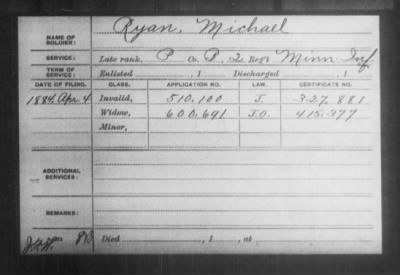 NAME OF SOLDIER: Ryan, Michael
SERVICE: Late rank, P Co. P, 2 Reg't Minn Inf.
TERM OF SERVICE: Enlisted , 1 Discharged , 1
DATE OF FILING. CLASS. APPLICATION NO. LAW. CERTIFICATE NO.
1884, Apr. 4 Invalid, 510,100 J. 327,881
Widow, 600,691 J.O. 415,377
Minor,
ADDITIONAL SERVICES:
REMARKS:
Died , 1 , at